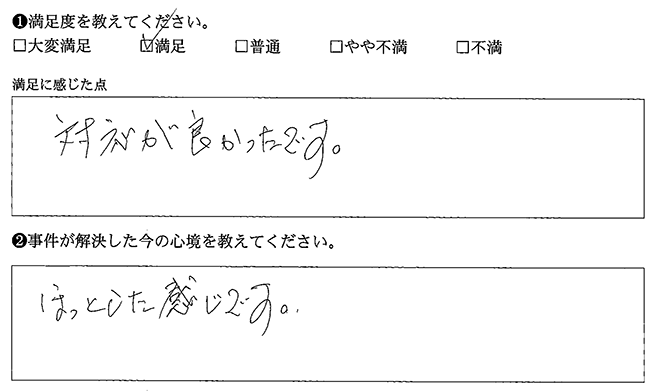 ❶満足度を教えてください。
□大変満足 ☑満足 □普通 □やや不満 □不満
満足に感じた点
対応が良かったです。
❷事件が解決した今の心境を教えてください。
ほっとした感じです。